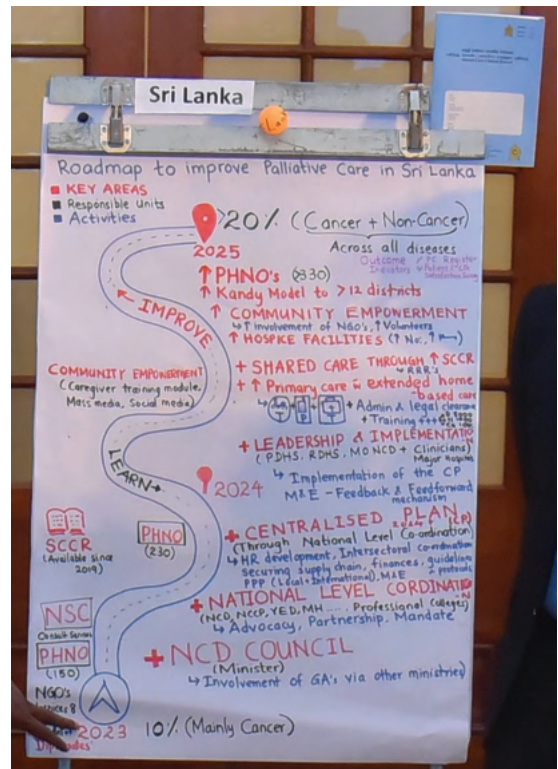 Sri Lanka
Roadmap to improve Palliative Care in Sri Lanka
KEY AREAS
Responsible Units
Activities
>20% (Cancer + Non-Cancer)
2025
Across all diseases
Outcome Indicators
PC Register
↑ PHNO's (330)
↑ Kandy Model to >12 districts
← IMPROVE
↑ COMMUNITY EMPOWERMENT
↳ ↑ involvement of NGO's, ↑ Volunteers
↑ HOSPICE FACILITIES (↑ No.,
COMMUNITY EMPOWERMENT
(Caregiver training module,
Mass media, Social media)
+ SHARED CARE THROUGH ↑ SCCR
↳ RRR's
+ ↑ Primary care in extended home
-based care
+ Admin & legal
+ Training +++
+ LEADERSHIP & IMPLEMENTATION
(PDHS, RDHS, MO NCD + Clinicians)
Major hospitals
LEARN →
2024
↳ Implementation of the CP
M&E - Feedback & Feedforward
mechanism
SCCR
(Available since
2019)
PHNO
(230)
+ CENTRALISED PLAN
(CP)
(Through National Level Co-ordination)
↳ HR development, Intersectoral co-ordination
securing supply chain, finances, guidelines
& protocols
PPP (Local + International), M&E
+ NATIONAL LEVEL CORDINATION
(NCD, NCCP, YED, MH ..... Professional Colleges)
↳ Advocacy, Partnership, Mandate
NSC
PHNO
(150)
+ NCD COUNCIL
(Minister)
↳ Involvement of GA's via other ministries)
NGO's
2023
10% (Mainly Cancer)